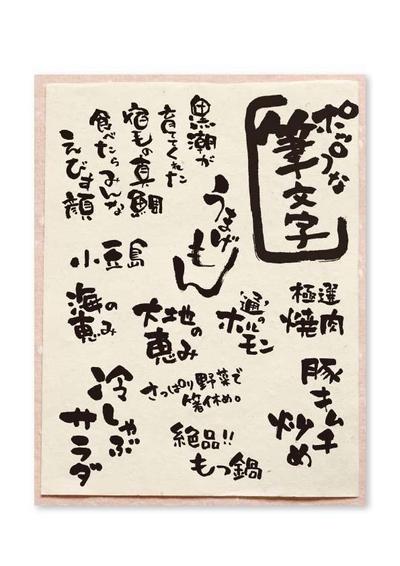 ポップな
筆文字
黒潮が
育ててくれた
宿毛の真鯛
食べたらみんな
えびす顔
うまげ
もん
小豆島
極選
焼肉
通の
ホルモン
大地の
恵み
海の
恵み
豚キムチ
炒め
さっぱり野菜で
箸休め。
冷しゃぶ
サラダ
絶品!!
もつ鍋